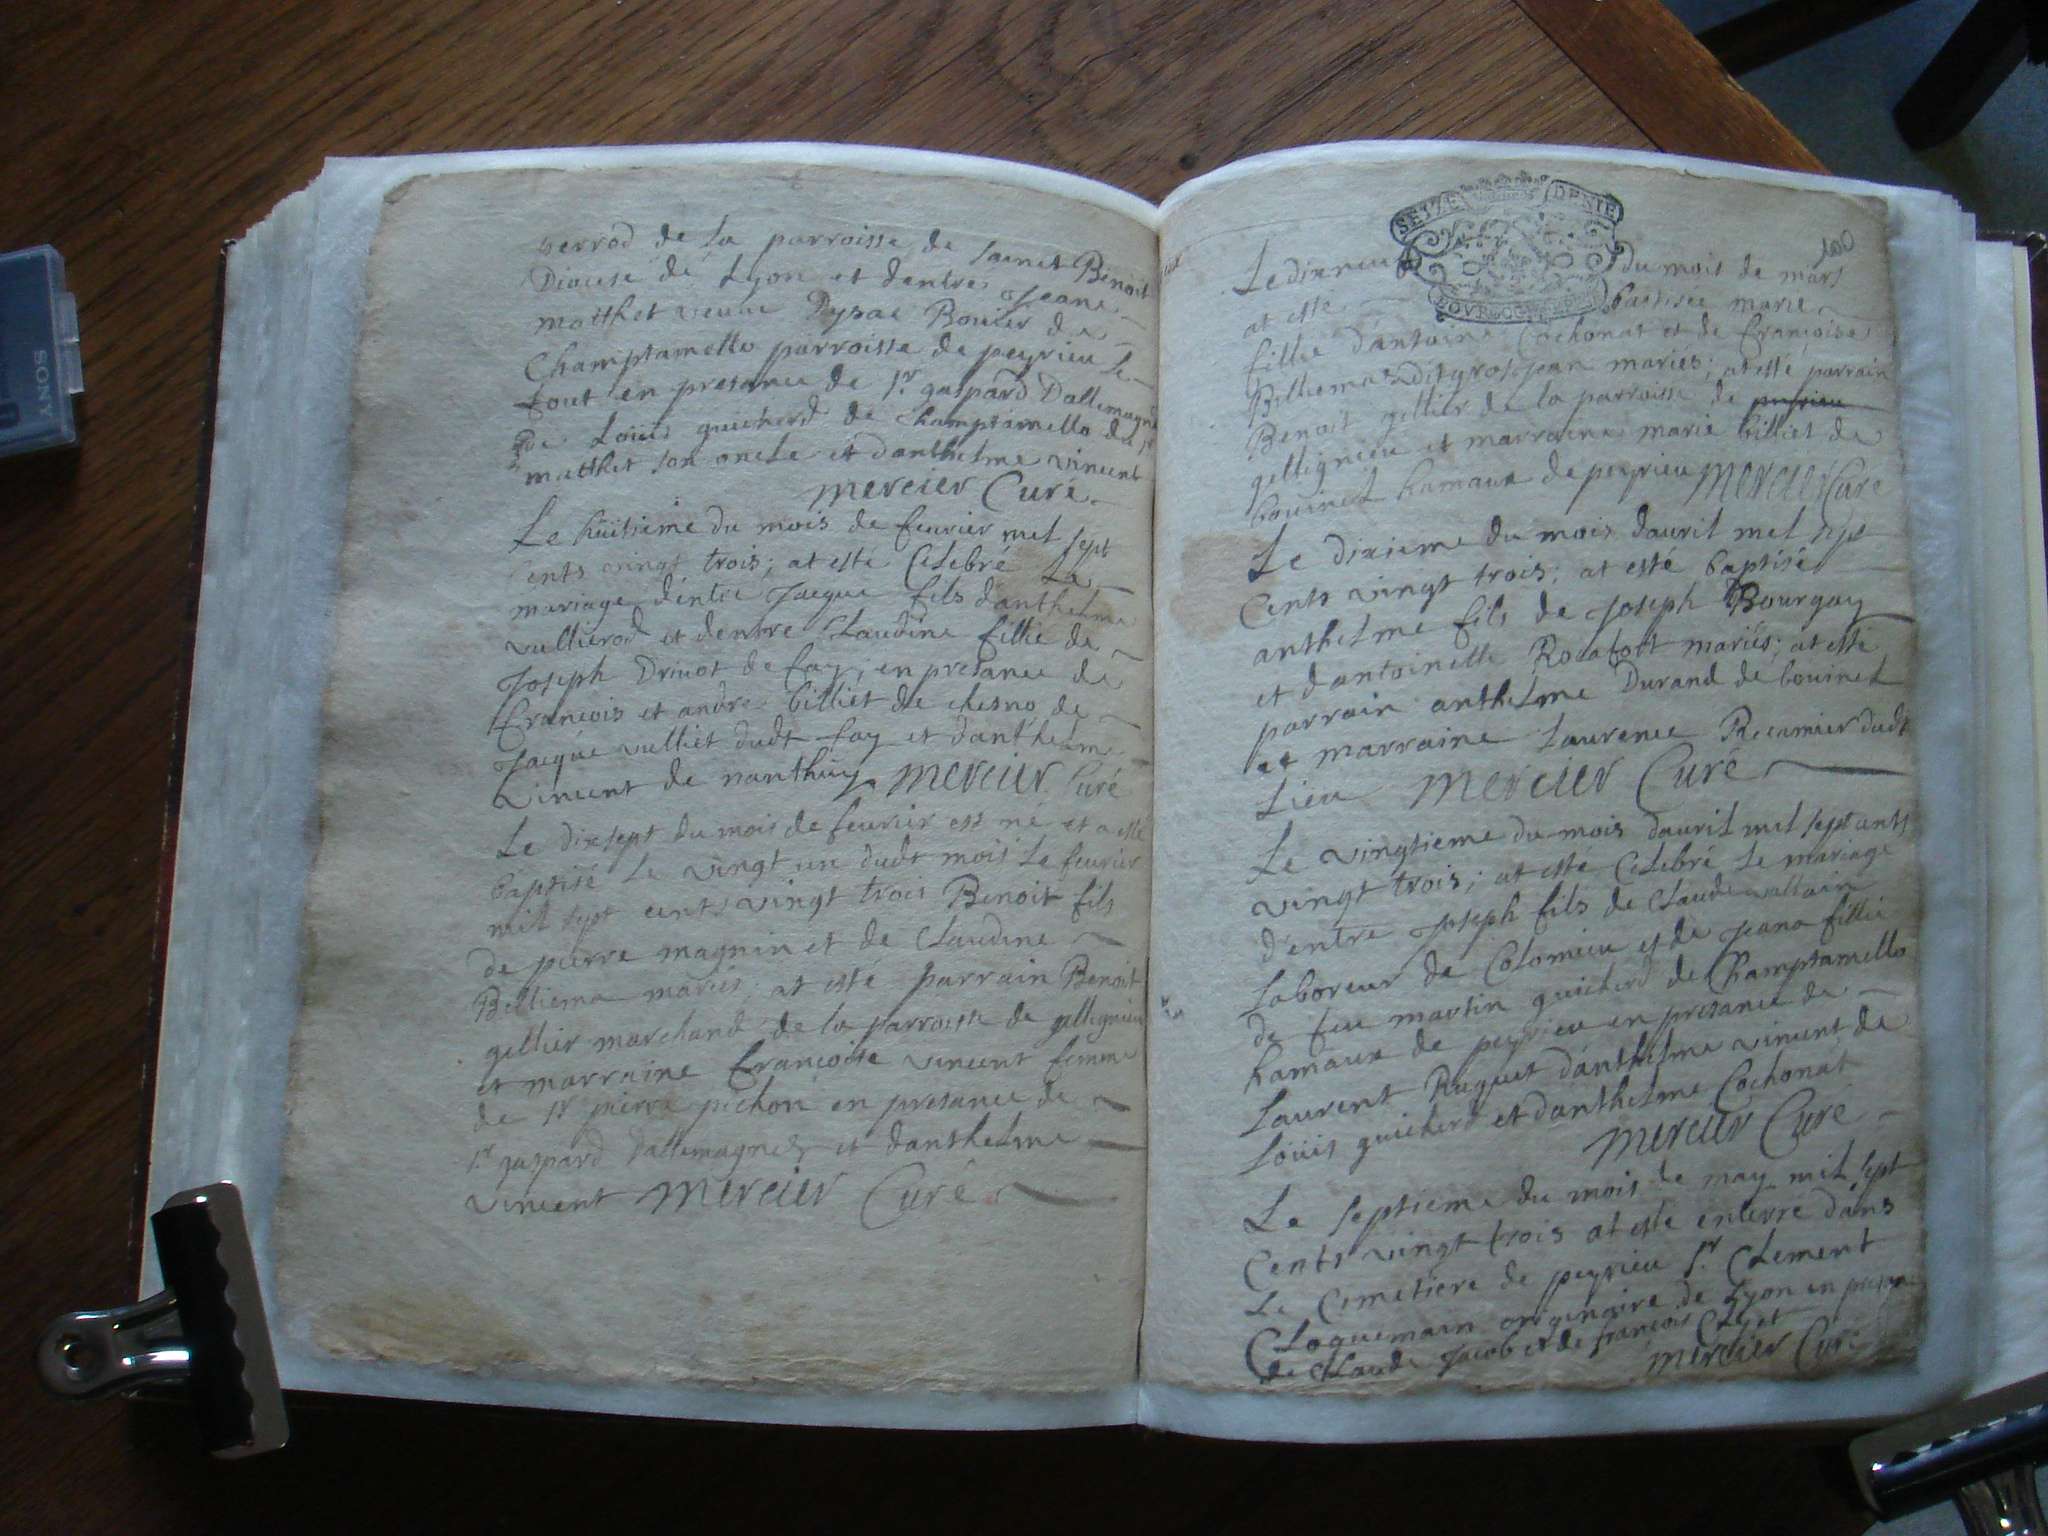 verrod de la parroisse de sainct Benoit
Diocese de Lyon et dentre Jeane
matthet veuve Dysac Bouvier de
Champtamello parroisse de peyrieu le
tout en presance de Sr gaspard Dallemagne
De Loüis guicherd de Champtamello du Sr
matthet son oncle et danthelme vincent
mercier Curé
Le huitieme du mois de feurier mil sept
cents vingt trois; at esté Celebré Le
mariage d'entre Jacque fils danthelme
vullierod et dentre Claudine fillie de
Joseph Drivot de fay; en presance de
francois et andre billiet de chesno de
Jacque vulliet dudt fay et danthelme
vincent de nanthuy mercier Curé
Le dixsept du mois de feurier est né et a esté
baptisé le vingt un dudt mois de feurier
mil sept cents vingt trois Benoit fils
de pierre magnin et de Claudine
Belliema mariés; at esté parrain Benoit
gellier marchand de la parroisse de gellignieu
et marraine francoise vincent femme
de Sr pierre pichon en presance de
Sr gaspard Dallemagne et danthelme
vincent mercier Curé
SEIZE DENIE
Le dixneu du mois de mars
at esté baptisée marie
fillie d'antoine Cochonat et de francoise
Belliema dit gros jean mariés; at esté parrain
Benoit gellier de la parroisse de peyrieu
gellignieu et marraine marie billiet de
bouinel hamaux de peyrieu mercier Curé
Le dixieme du mois dauril mil sept
Cents vingt trois; at esté baptisé
anthelme fils de Joseph Bourgay
et dantoinette Rocafort mariés; at esté
parrain anthelme Durand de bouinel
et marraine Laurence Recamier dudt
Lieu mercier Curé
Le vingtieme du mois dauril mil sept cents
vingt trois; at esté Celebré le mariage
d'entre Joseph fils de Claude vallain
Laboreur de Colomieu et de Jeane fillie
de feu martin guicherd de Champtamello
hamaux de peyrieu en presance de
Laurent Ruguet danthelme vincent de
Loüis guicherd et danthelme Cochonat
mercier Curé
Le septieme du mois de may mil sept
Cents vingt trois at esté enterré dans
Le Cimetiere de peyrieu Sr Clement
Cloquemain originaire de Lyon en presan
de Claude Jacob et de francois Clyet
mercier Curé